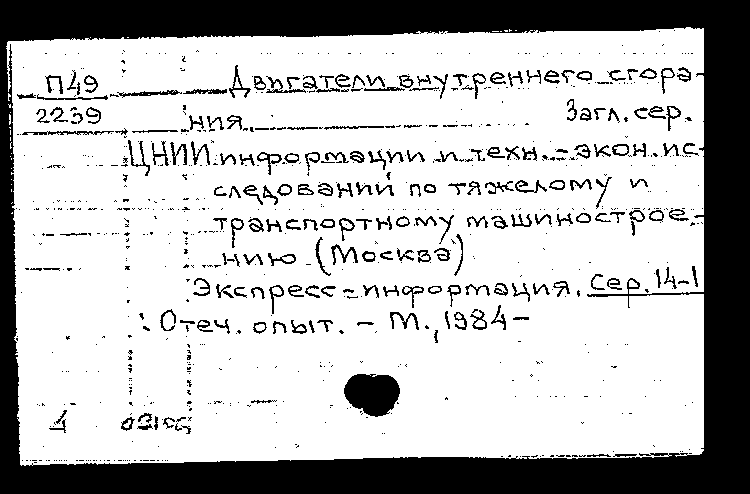 П49 Двигатели внутреннего сгора-
2239 ния. Загл. сер.
ЦНИИ информации и техн.-экон. ис-
следований по тяжелому и
транспортному машинострое-
нию (Москва)
Экспресс-информация. Сер. 14-1
: Отеч. опыт. - М., 1984-